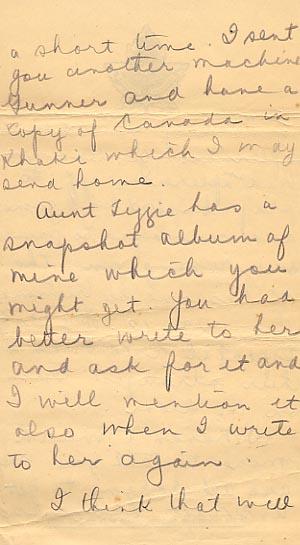 a short time. I sent
you another machine
Gunner and have a
copy of Canada in
Khaki which I may
send home.
Aunt Lizzie has a
snapshot album of
mine which you
might get. You had
better write to her
and ask for it and
I will mention it
also when I write
to her again.
I think that will